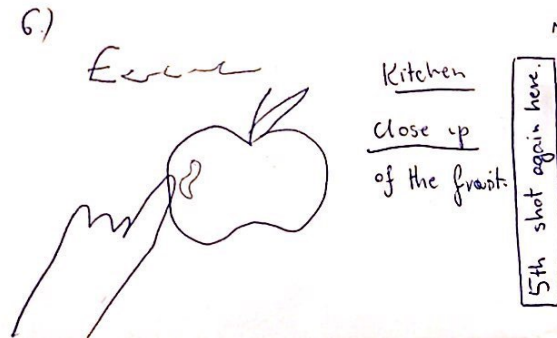 6.)
Kitchen
close up
of the fruit.
5th shot again here.